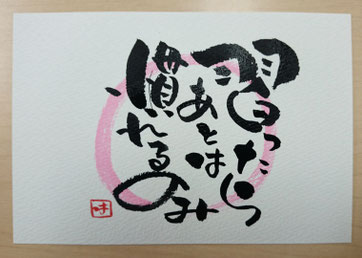 習ったら
あとは
慣れるのみ